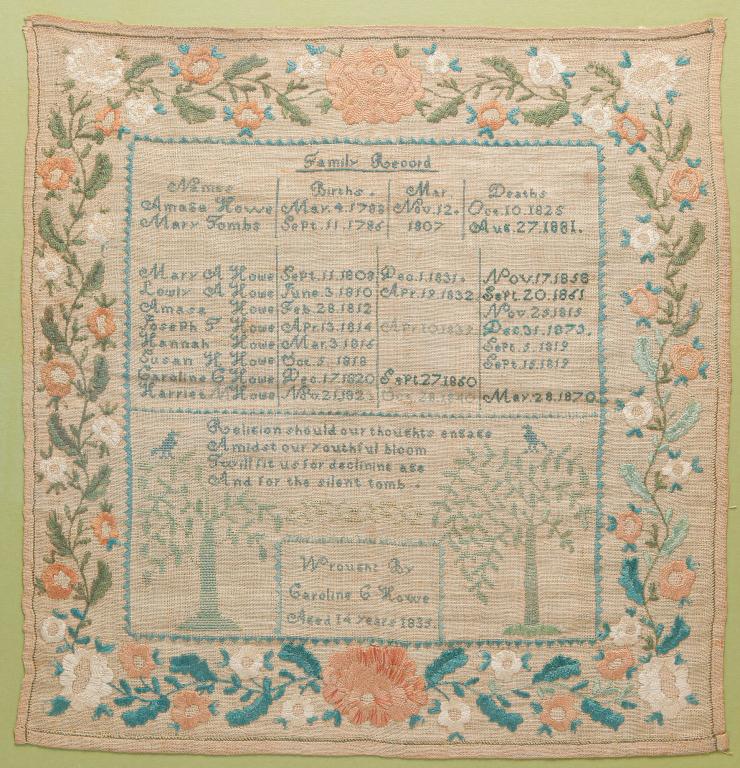 Family Record
Names Births. Mar. Deaths
Amasa Howe Mar. 4. 1783 Nov. 12. Oct. 10. 1825
Mary Tombs Sept. 11. 1786 1807 Aug. 27. 1881.
Mary A Howe Sept. 11. 1808 Dec. 1. 1831. Nov. 17. 1858
Lowly A Howe June. 3. 1810 Apr. 19. 1832. Sept. 20. 1861
Amasa Howe Feb. 28. 1812 Nov. 25. 1815
Joseph T Howe Apr. 13. 1814 Apr. 10. 1839. Dec. 31. 1873.
Hannah Howe Mar. 3. 1816 Sept. 5. 1819
Susan H Howe Oct. 5. 1818 Sept. 15. 1819
Caroline C Howe Dec. 17. 1820 Sept 27 1860
Harriet N Howe Nov. 21. 1823 Oct. 28. 1840 May. 28. 1870.
Religion should our thoughts engage
Amidst our youthful bloom
T will fit us for declining age
And for the silent tomb.
Wrought By
Caroline C Howe
Aged 14 years 1835